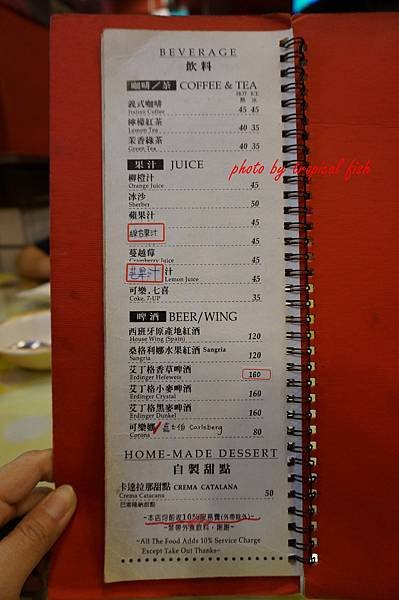 BEVERAGE
飲料
咖啡／茶 COFFEE & TEA
HOT ICE
熱 冰
義式咖啡 45 45
Italian Coffee
檸檬紅茶 40 35
Lemon Tea
茉香綠茶 40 35
Green Tea
果汁 JUICE
photo by tropical fish
柳橙汁 45
Orange Juice
冰沙 50
Sherbet
蘋果汁 45
綜合果汁 45
蔓越莓 45
Cranberry Juice
芒果汁 汁 45
Lemon Juice
可樂.七喜 35
Coke, 7-UP
啤酒 BEER/WING
西班牙原產地紅酒 120
House Wing (Spain)
桑格利娜水果紅酒 Sangria 120
Sangria
艾丁格香草啤酒 160
Erdinger Hefeweis
艾丁格小麥啤酒 160
Erdinger Crystal
艾丁格黑麥啤酒 160
Erdinger Dunkel
可樂娜 嘉士伯 Carlsberg 80
Corona
HOME-MADE DESSERT
自製甜點
卡達拉那甜點 CREMA CATALANA 50
Crema Catacana
巴塞隆納甜點
~本店均酌收10%服務費(外帶除外)~
~禁帶外食飲料，謝謝~
~All The Food Adds 10% Service Charge
Except Take Out Thanks~